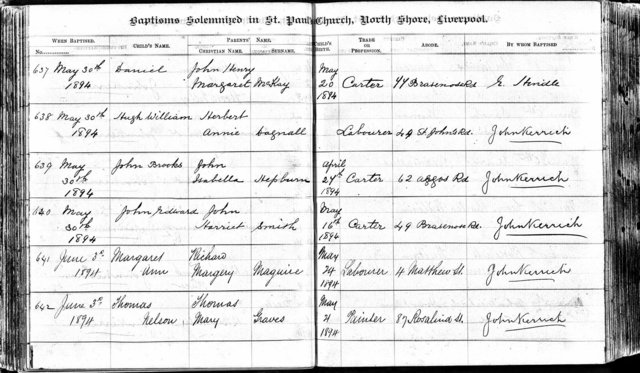 Baptisms Solemnized in St. Paul's Church, North Shore, Liverpool.
WHEN BAPTISED. CHILD'S NAME. PARENTS' NAME. CHILD'S BIRTH. TRADE OR PROFESSION. ABODE. BY WHOM BAPTISED
No. CHRISTIAN NAME. SURNAME.
637 May 30th Daniel John Henry May
1894 Margaret McKay 20 Carter 44 Brasenose Rd E. Hindle
1894
638 May 30th Hugh William Herbert
1894 Annie Cagnall Labourer 49 St Johns Rd John Kerrich
639 May John Brooks John April
30th Isabella Hepburn 27th Carter 62 Argos Rd John Kerrich
1894 1894
640 May John Edward John May
30th Harriet Smith 16th Carter 49 Brasenose Rd. John Kerrich
1894 1894
641 June 3rd Margaret Richard May
1894 Ann Margery Maguire 24 Labourer 4 Matthew St. John Kerrich
1894
642 June 3rd Thomas Thomas May
1894 Nelson Mary Graves 4 87 Rosalind St. John Kerrich
1894